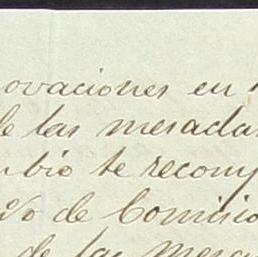 ovaciones en
de las mesadas
mbio te recom
% de Comisio
de las mesa